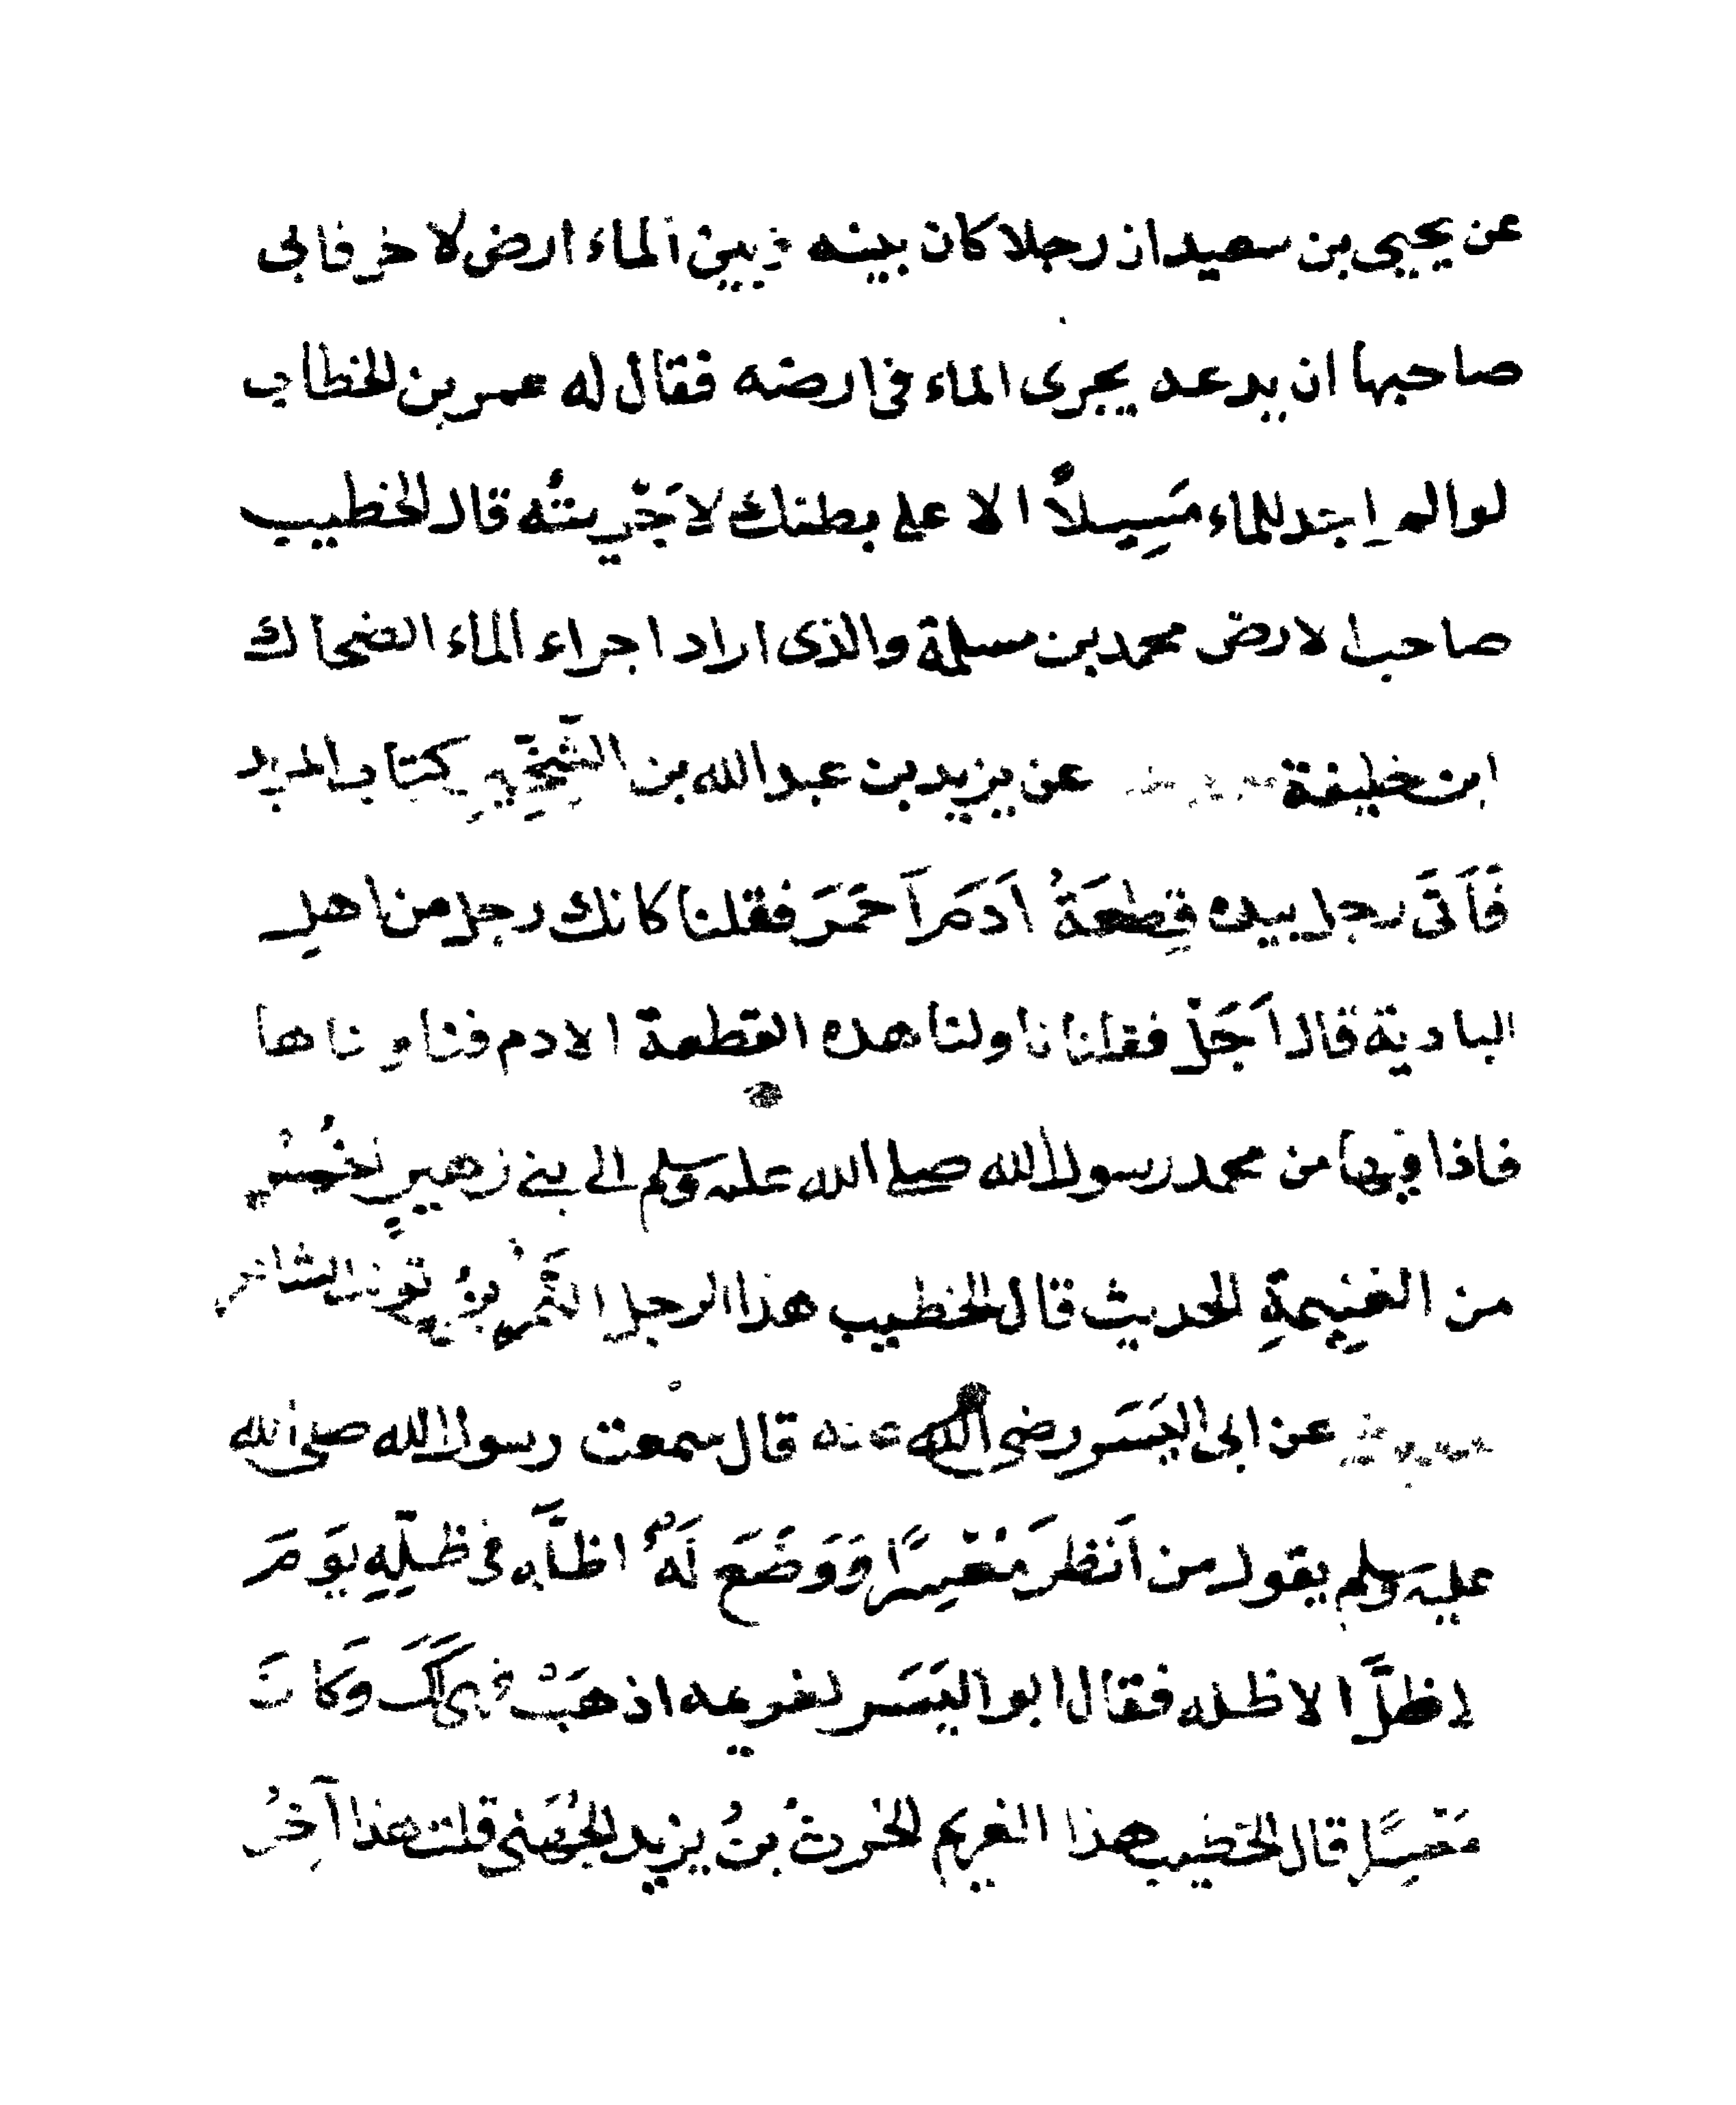 عن يحيى بن سعيد ان رجلا كان بينه و بين الماء ارض لاخر فابى
صاحبها ان يدعه يجرى الماء فى ارضه فقال له عمر بن الخطاب
لو الم اجد للماء مَسِيلاً الا على بطنك لاَجْريتُه قال الخطيب
صاحب الارض محمد بن مسلمة والذى اراد اجراء الماء الضحاك
ابن خليفة عن يزيد بن عبد الله بن الشِّخِّيرِ كتاب المربد
فَاَتَى رجل بيده قِطعَةُ اَدَمَ اَحمَرَ فقلنا كانك رجل من اهل
البادية قال اَجَلْ فقلنا ناولنا هذه القطعة الادم فناولناها
فاذا فيها من محمد رسول الله صلى الله عليه وسلم الى بنى زهيرٍ خُمُسُ
من الغنِيمةِ الحديث قال الخطيب هذا الرجل النَّمْر بنُ تولب الشاعر
عن ابى اليَسَر رضى الله عنه قال سمعت رسول الله صلى الله
عليه وسلم يقول من اَنظرَ مُعْسِرًا وَوَضَعَ لَهُ اظلَّه فى ظلِّهِ يَومَ
لا ظلَّ الا ظله فقال ابو اليَسَر لغريمه اذهَبْ فهى لَكَ وَكانَ
مُعسِرًا قال الخطيب هذا الغريم الحرثُ بنُ يزيد الجُهَنى قلت هذا آخِرُ